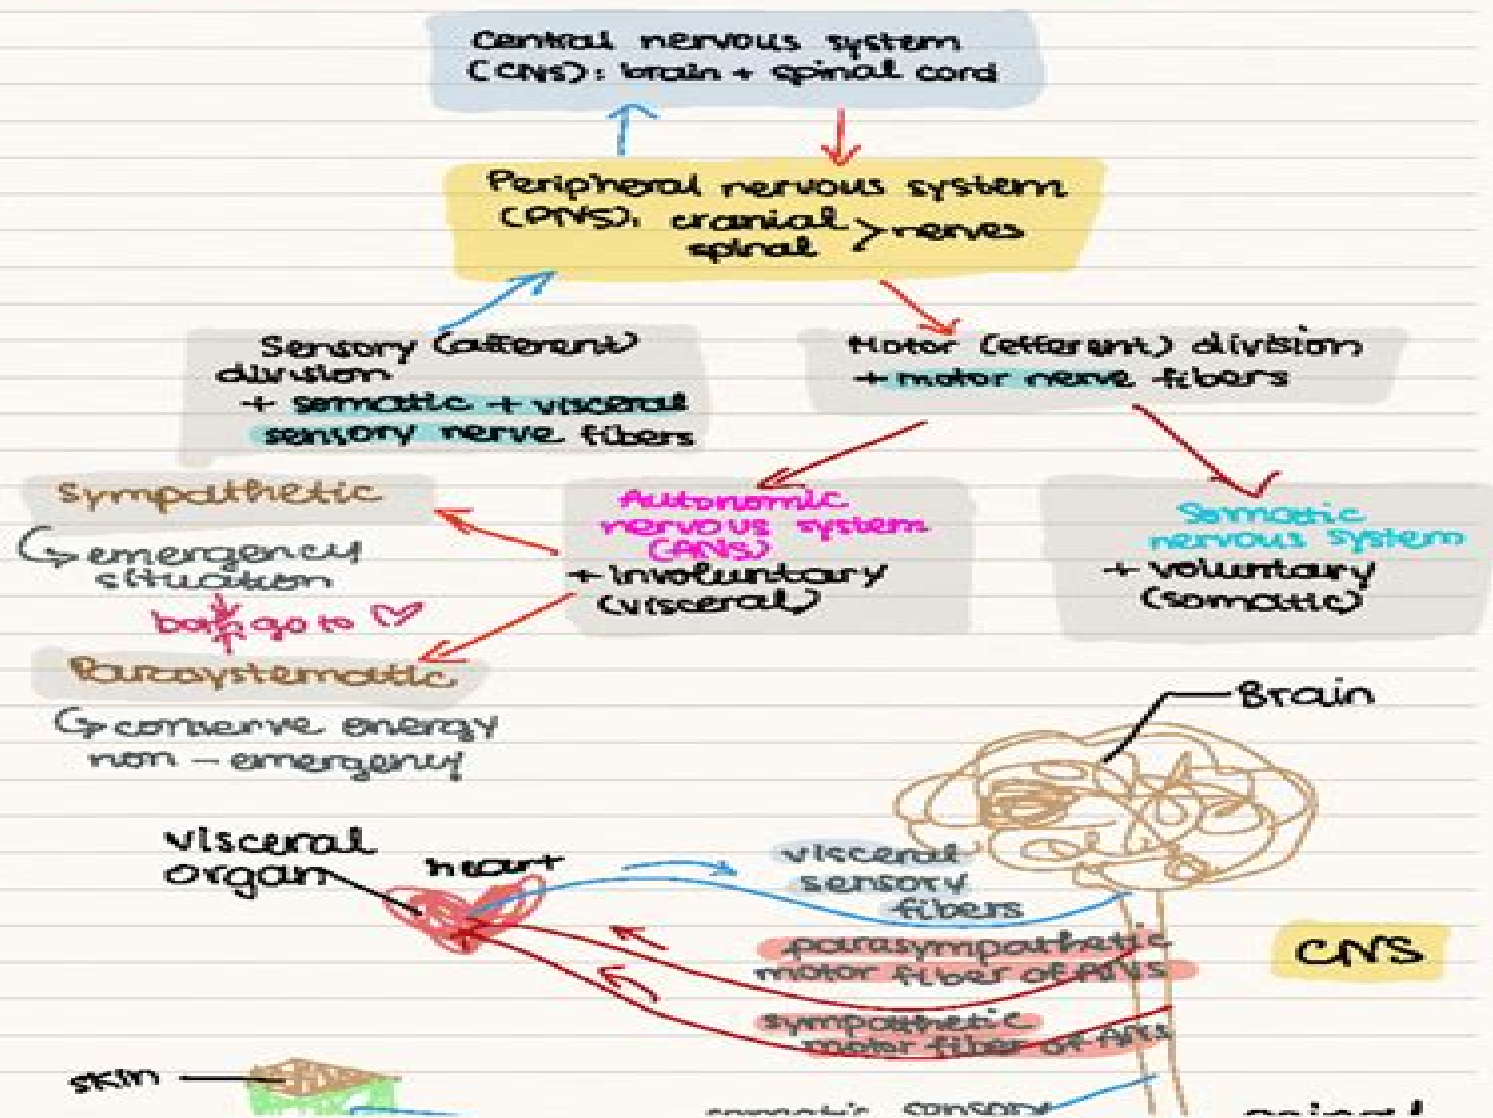 Central nervous system
(CNS): brain + spinal cord
Peripheral nervous system
(PNS): cranial > nerves
spinal
Sensory (afferent)
division
+ somatic + visceral
sensory nerve fibers
Motor (efferent) division
+ motor nerve fibers
Sympathetic
↳ emergency
situation
both go to ♡
Parasystematic
↳ conserve energy
non - emergency
Autonomic
nervous system
(ANS)
+ Involuntary
(visceral)
Somatic
nervous system
+ voluntary
(somatic)
Brain
visceral
organ
heart
visceral
sensory
fibers
parasympathetic
motor fiber of ANS
sympathetic
motor fiber of ANS
CNS
skin
somatic sensory
spinal